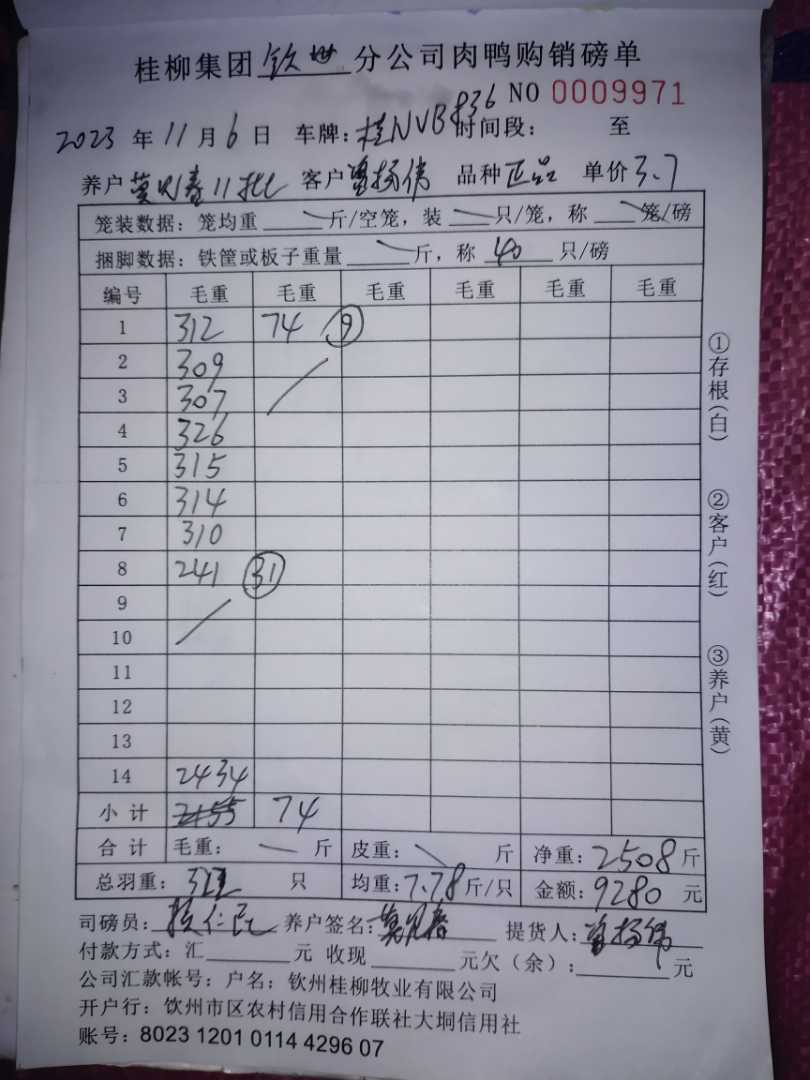 桂柳集团钦州分公司肉鸭购销磅单
NO 0009971
2023 年 11 月 6 日 车牌:桂NVB836 时间段: 至
养户 莫 春11批 客户 扬伟 品种 正品 单价 3.7
笼装数据:笼均重 斤/空笼,装 只/笼,称 笼/磅
捆脚数据:铁筐或板子重量 斤,称 40 只/磅
编号 毛重 毛重 毛重 毛重 毛重 毛重
1 312 74 9
2 309
3 307
4 326
5 315
6 314
7 310
8 241 31
9
10
11
12
13
14 2434
小计 2155 74
合计 毛重: 斤 皮重: 斤 净重:2508 斤
总羽重: 322 只 均重:7.78 斤/只 金额:9280 元
司磅员: 仁 养户签名:莫 春 提货人: 扬伟
付款方式:汇 元 收现 元欠(余): 元
公司汇款帐号:户名:钦州桂柳牧业有限公司
开户行:钦州市区农村信用合作联社大垌信用社
账号:8023 1201 0114 4296 07
①存根(白)
②客户(红)
③养户(黄)